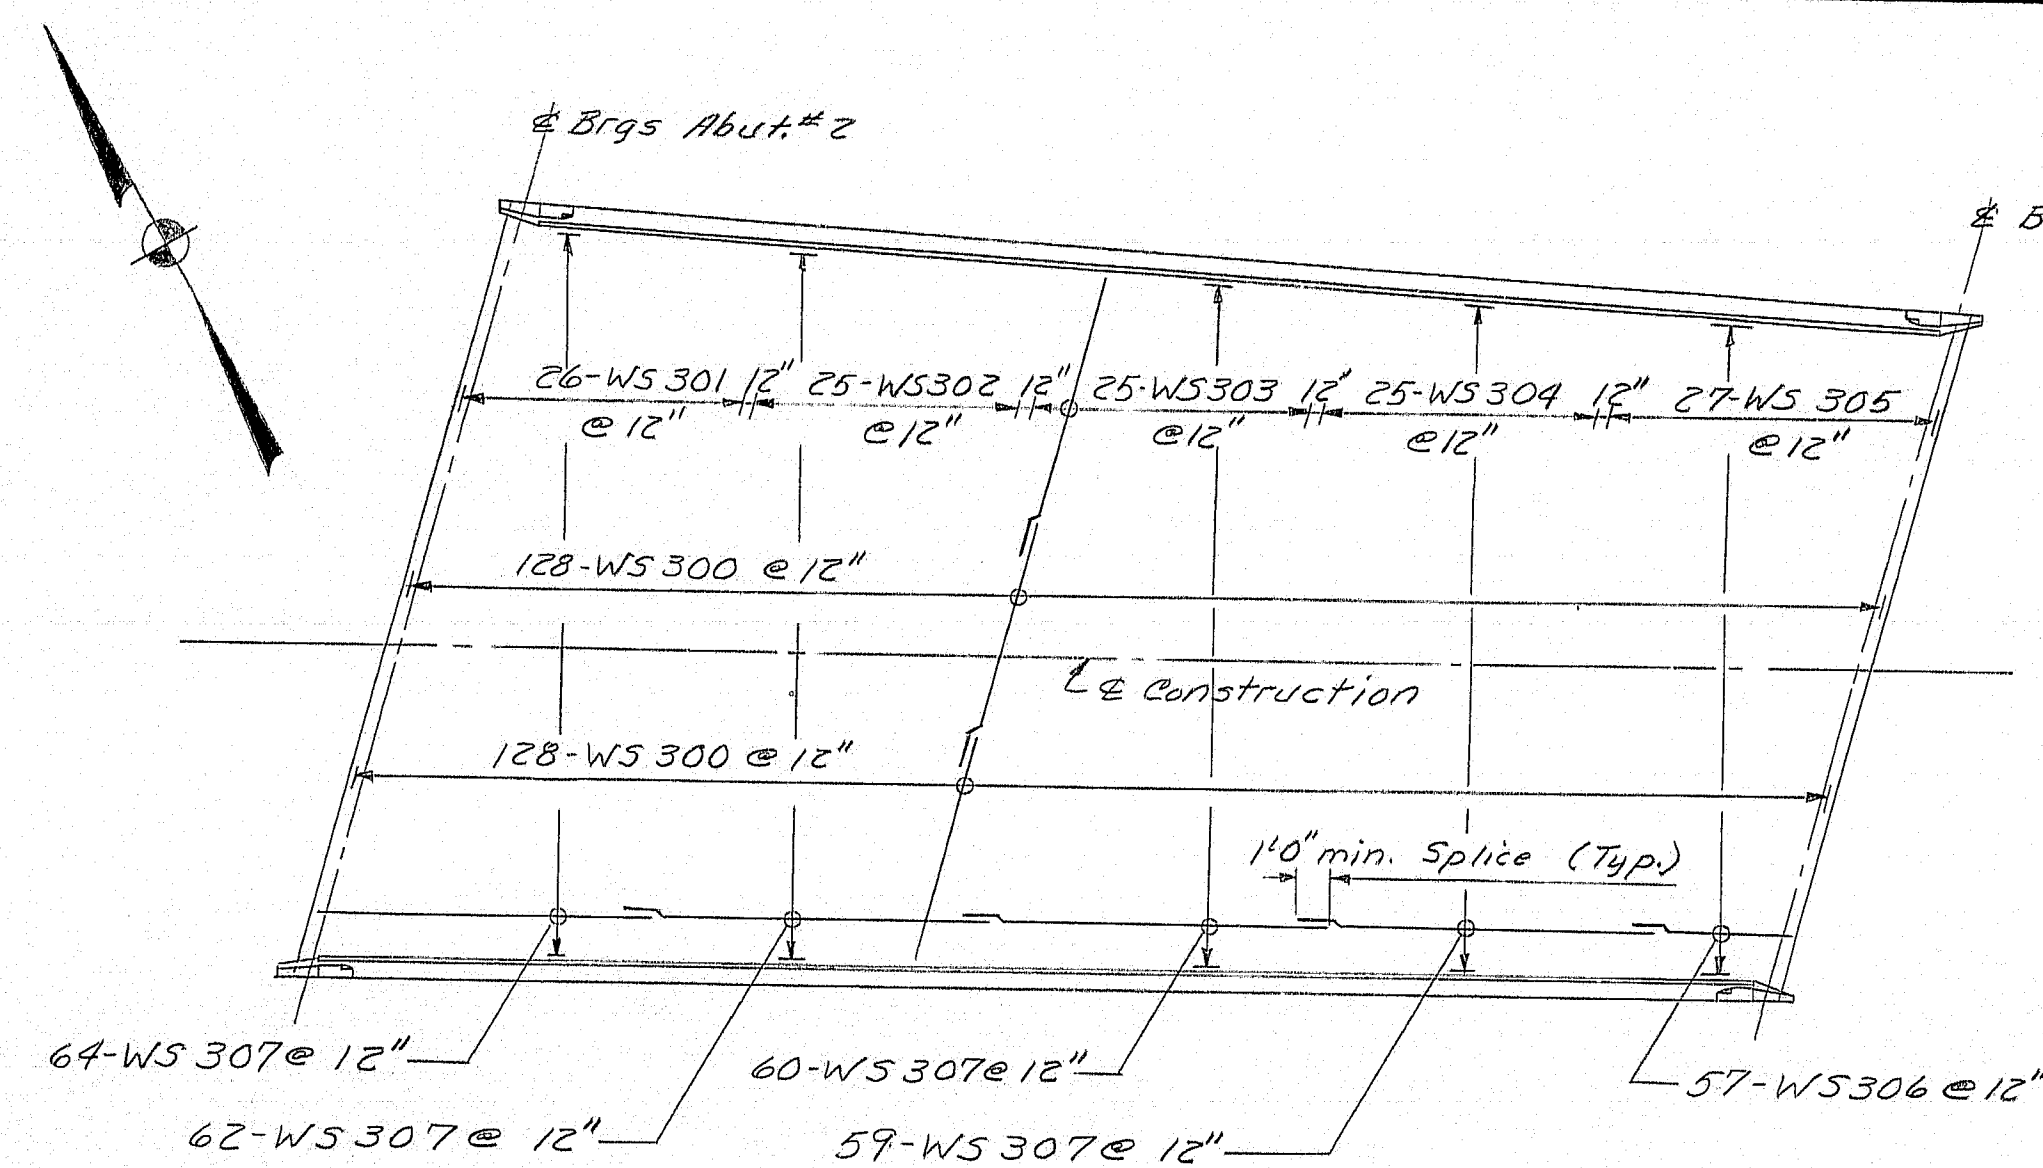 ℄ Brgs Abut. #2
℄ B
26-WS 301 12" 25-WS302 12" 25-WS303 12" 25-WS 304 12" 27-WS 305
@ 12" @12" @12" @12" @12"
128-WS 300 @ 12"
℄ Construction
128-WS 300 @ 12"
1'0" min. Splice (Typ.)
64-WS 307@ 12"
60-WS 307@ 12"
57-WS306 @ 12"
62-WS 307 @ 12"
59-WS 307@ 12"